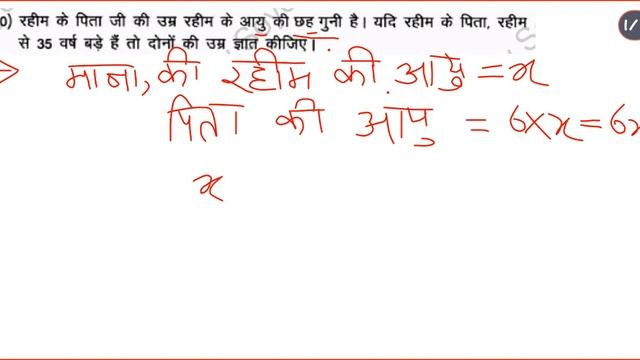 0) रहीम के पिता जी की उम्र रहीम के आयु की छह गुनी है। यदि रहीम के पिता, रहीम
से 35 वर्ष बड़े हैं तो दोनों की उम्र ज्ञात कीजिए।
माना, की रहीम की आयु = x
पिता की आयु = 6×x = 6x
x